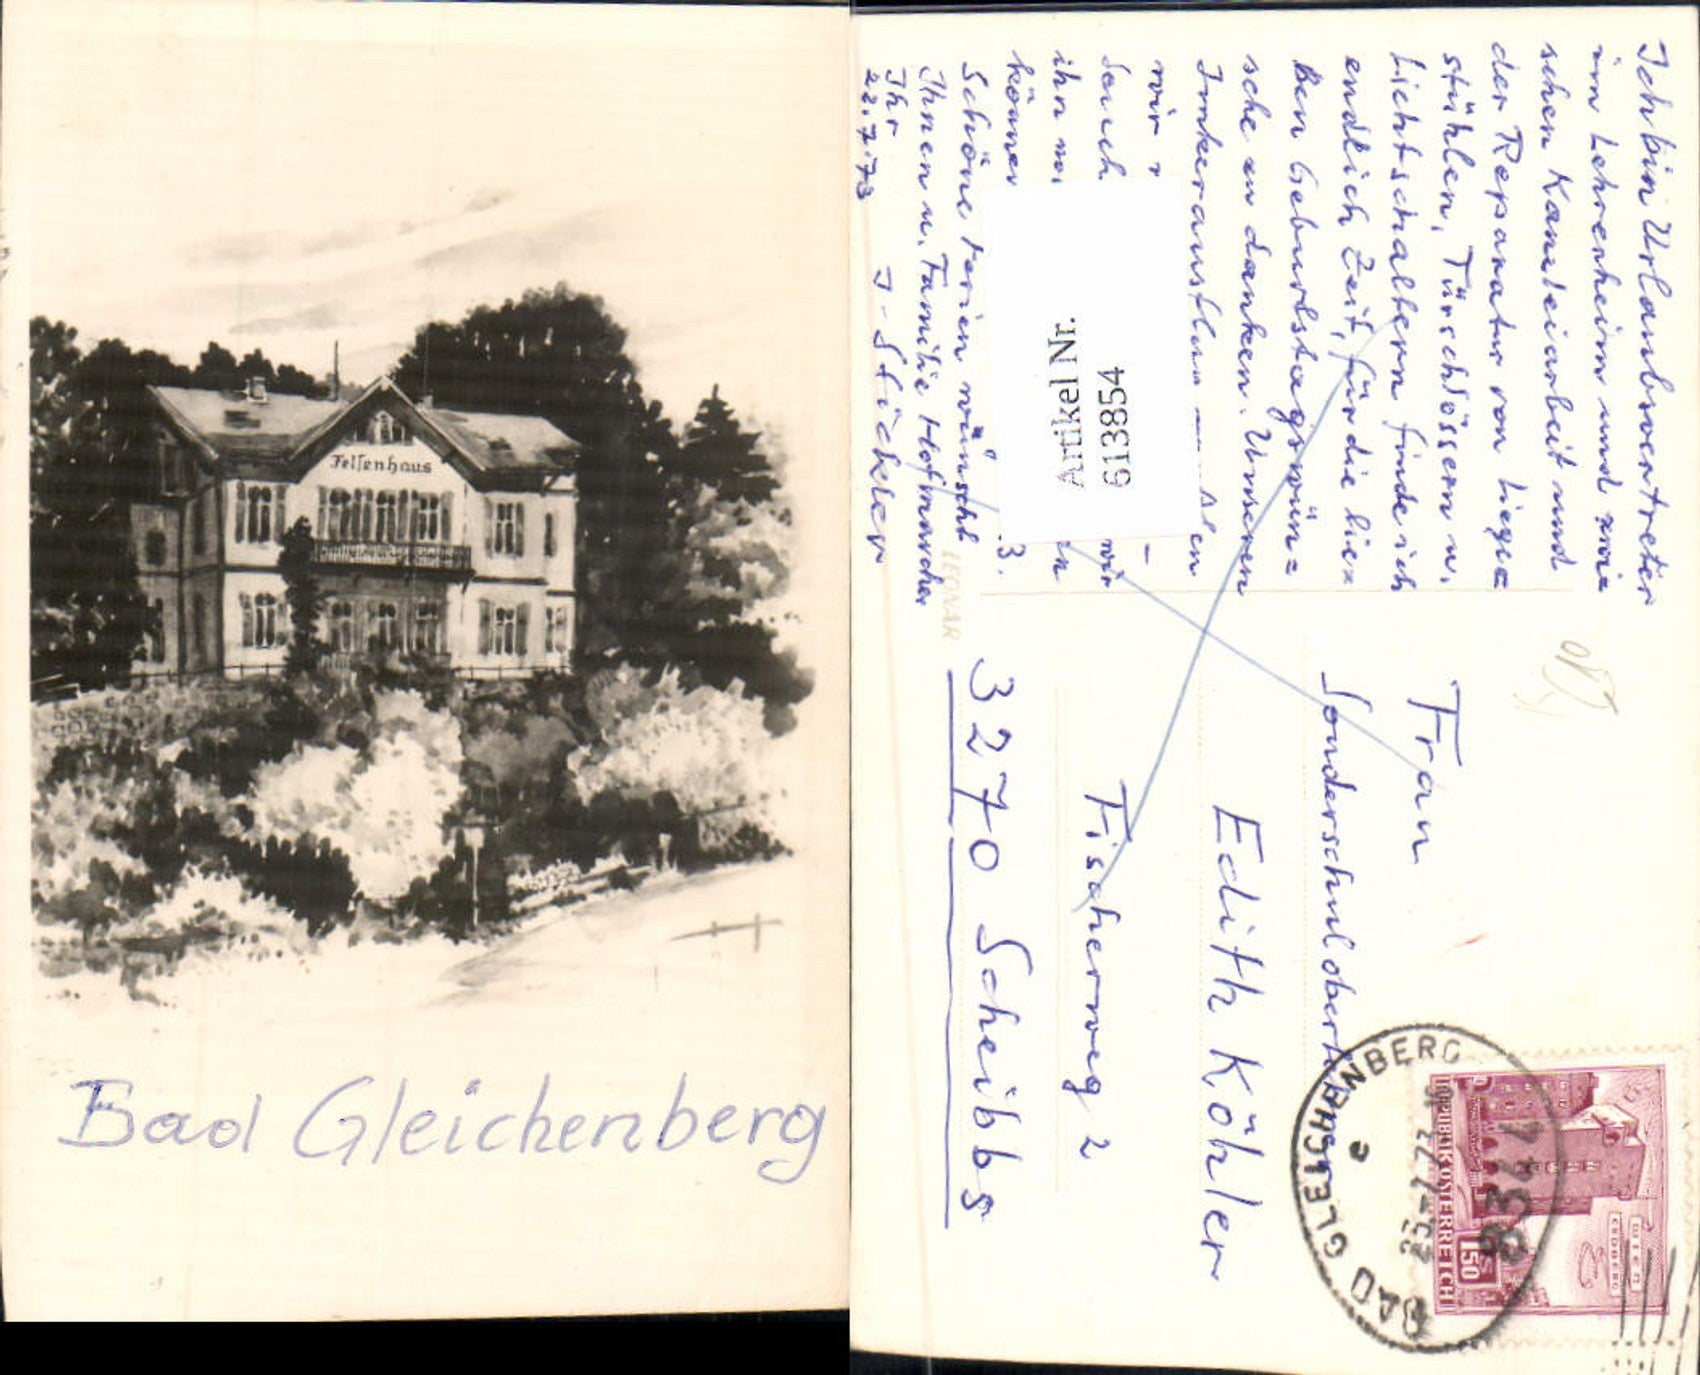 Felsenhaus
Bad Gleichenberg
Ich bin Urlaubsvertreter
im Lehrerheim und zwi=
schen Kanzleiarbeit und
der Reparatur von Liege=
stühlen, Türschlössern u.
Lichtschaltern finde ich
endlich Zeit, für die lie=
ben Geburtstagswün=
sche zu danken. Unseren
Imkerausflug
wir
wir
ihn
können 3.
Schöne Ferien wünscht
Ihnen u. Familie Hofmarcher
Ihr J. Stöckler
22.7.73
Artikel Nr.
613854
LEONAR
Frau
Sonderschuloberlehrerin
Edith Köhler
Fischerweg 2
3270 Scheibbs
BAD GLEICHENBERG
25.-7.73
8344
REPUBLIK ÖSTERREICH
S 1.50
WIEN
ERDBERG